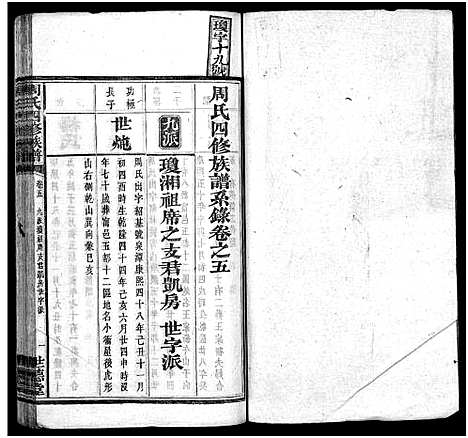 瓊字十九號
周氏四修族譜系錄卷之五
九派
瓊湘祖席之支君凱房 世字派
功極
長子
世炖
周氏出字紹基號泉潭康熙四十八年己丑十一月
初四酉時生乾隆四十四年己亥六月廿四申時沒
年七十歲葬甯邑五都十二區地名小衡星後虎形
山右側乾山巽向兼巳亥
周氏四修族譜
卷五
一
世德堂